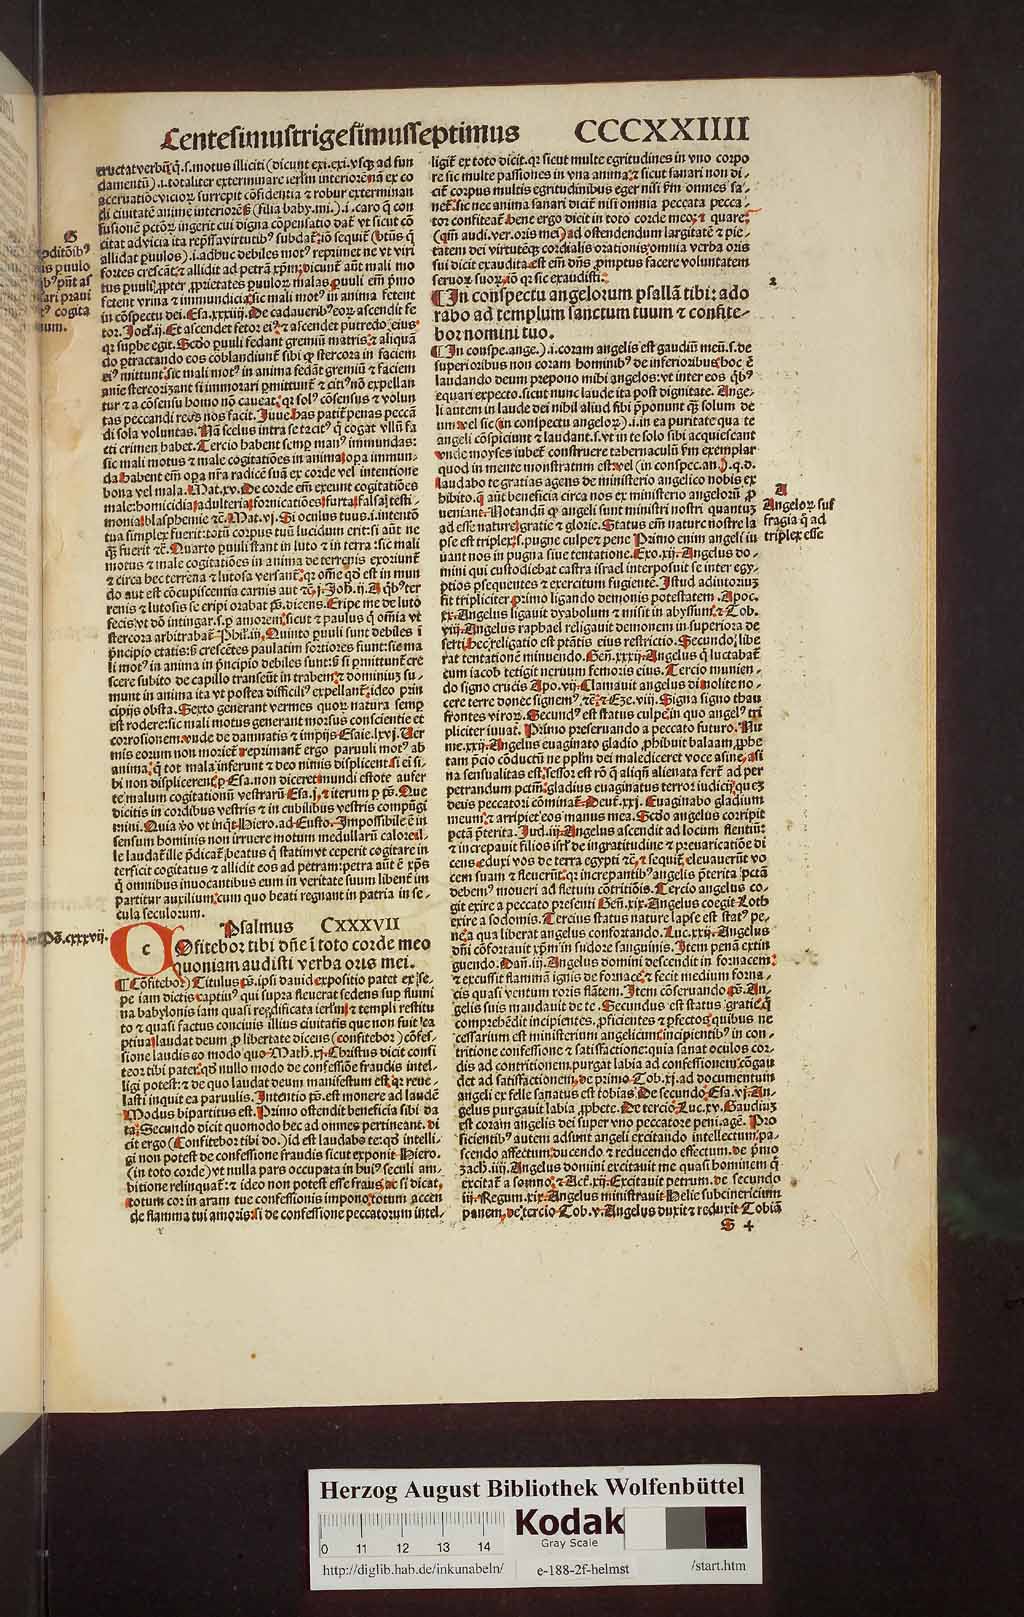 Centesimustrigesimusseptimus CCCXXIIII
eructat verbū q̄.s. motus illiciti (dicunt exi.exi.vsq; ad fun
damentū).i.totaliter exterminare ierlm̄ interiorē
di ciuitatē anime interiorē
citat ad vicia ita
allidat paruulos).i.adhuc debiles motꝰ reprimet ne vt viri
fortes crescāt: ⁊ allidit ad petrā xp̄m: dicunt aūt mali mo
tus puuli ,ppter ,prietates puulorꝝ malas. puuli em̄ pmo
fetent vrina ⁊ immundicia: sic mali motꝰ in anima fetent
in cōspectu dei. Esa.xxxiiij. De cadaueribꝰ eorꝝ ascendit fe
tor. Joel.ij. Et ascendet fetor eiꝰ: ⁊ ascendet putredo eius
qr supbe egit. Scdo puuli fedant gremiū matris: ⁊ aliquā
do ptractando eos coblandiunt sibi qꝫ stercora in faciem
eiꝰ mittunt: sic mali motꝰ in anima fedāt gremiū ⁊ faciem
anie stercorizant si immorari pmittunt ⁊ citiꝰ nō expellan
tur ⁊ a cōsensu homo nō caueat: qr solꝰ cōsensus ⁊ volun
tas peccandi reos nos facit. Juue. has patit penas peccā
di sola voluntas. Nā scelus intra se tacitꝰ q̄ cogat vllū fa
cti crimen habet. Tercio habent semp manꝰ immundas:
sic mali motus ⁊ male cogitatiōes in anima: opa immun-
da habent em̄ opa nr̄a radicē suā ex corde vel intentione
bona vel mala. Mat.xv. De corde em̄ exeunt cogitatiōes
male: homicidia: adulteria: fornicatiōes: furta: falsa testi-
monia: blasphemie ⁊c̄. Mat.vj. Si oculus tuus.i.intentō
tua simplex fuerit: totū corpus tuū lucidum erit: si aūt ne
q̄ fuerit ⁊c̄. Quarto puuli stant in luto ⁊ in terra: sic mali
motus ⁊ male cogitatiōes in anima de terrenis exoriunt
⁊ circa hec terrena ⁊ lutosa versant: qr om̄e qd est in mun
do aut est cōcupiscentia carnis aut ⁊c̄. j. Joh. ij. A qbꝰ ter
renis ⁊ lutosis se eripi orabat ps̄. dicens. Eripe me de luto
fecis: vt dō intingar. s. p amorem: sicut ⁊ paulus q̄ om̄ia vt
stercora arbitrabat. Phil. iij. Quinto puuli sunt debiles ī
pncipio etatis: sꝫ crescētes paulatim fortiores fiunt: sic ma
li motꝰ in anima in pncipio debiles sunt: sꝫ si pmittunt cre
scere subito de capillo transeūt in trabem: ⁊ dominiuꝫ su-
munt in anima ita vt postea difficiliꝰ expellant: ideo prin
cipijs obsta. Sexto generant vermes quorꝝ natura semp
est rodere: sic mali motus generant morsus conscientie et
corrosionem. vnde de damnatis ⁊ impijs Esaie. lxvj. Uer
mis eorum non moriet: reprimant ergo paruuli motꝰ ab
anima: q̄ tot mala inferunt ⁊ deo nimis displicent. si ei si-
bi non displicerent: p Esa. non diceret: mundi estote aufer
te malum cogitationū vestrarū Esa. j. ⁊ iterum p ps̄. Que
dicitis in cordibus vestris ⁊ in cubilibus vestris compūgi
mini. Quia vo vt inqt Hiero. ad Eusto. Impossibile ē in
sensum hominis non irruere motum medullarū calore: il
le laudat ille pdicat beatus q̄ statim vt ceperit cogitare in
terficit cogitatus ⁊ allidit eos ad petram: petra aūt ē xp̄s
q̄ omnibus inuocantibus eum in veritate suum libent im
partitur auxilium: cum quo beati regnant in patria in se-
cula seculorum.
Psalmus CXXXVII
c Ofitebor tibi dn̄e ī toto corde meo
quoniam audisti verba oris mei.
¶ Cōfitebor) Titulus ps̄. ipsi dauid expositio patet ex se-
pe iam dictis captiuꝰ qui supra fleuerat sedens sup flumi
na babylonis iam quasi reedificata ierlm̄ ⁊ templi restitu
to ⁊ quasi factus conciuis illius ciuitatis que non fuit ea
ptiua: laudat deum ,p libertate dicens (confitebor) cōfes-
sione laudis eo modo quo Math. xj. Christus dicit confi
teor tibi pater: qd nullo modo de confessiōe fraudis intel-
ligi potest: ⁊ de quo laudat deum manifestum est: qr reue-
lasti inquit ea paruulis. Intentio ps̄. est monere ad laudē
Modus bipartitus est. Primo ostendit beneficia sibi da
ta. Secundo dicit quomodo hec ad omnes pertineant. di
cit ergo (Confitebor tibi do.) id est laudabo te: qd intelli-
gi non potest de confessione fraudis sicut exponit Hiero.
(in toto corde) vt nulla pars occupata in huiꝰ seculi am-
bitione relinquat: ⁊ ideo non potest esse fraus. ac si dicat.
totum cor in aram tue confessionis impono: totum accen
de flamma tui amoris: si de confessione peccatorum intel-
ligit ex toto dicit. qr sicut multe egritudines in vno corpo
re sic multe passiones in vna anima: ⁊ sicut sanari non di-
cit corpus multis egritudinibus eger nisi pm omnes sa-
net: sic nec anima sanari dicit nisi omnia peccata pecca-
tor confiteat. bene ergo dicit in toto corde meo: ⁊ quare:
(qm̄ audi. ver. oris mei) ad ostendendum largitatē ⁊ pie-
tatem dei virtutēqꝫ cordialis orationis: omnia verba oris
sui dicit exaudita. est em̄ dn̄s ,pmptus facere voluntatem
seruorꝝ suorꝝ iō qr sic exaudisti.
¶ In conspectu angelorum psallā tibi: ado
rabo ad templum sanctum tuum ⁊ confite-
bor nomini tuo.
¶ In conspe. ange.).i. coram angelis est gaudiū meū. s. de
superioribus non coram hominibꝰ de inferioribus: hoc ē
laudando deum prepono mihi angelos: vt inter eos qbꝰ
equari expecto. sicut nunc laude ita post dignitate. Ange-
li autem in laude dei nihil aliud sibi pponunt qꝫ solum de
um. vel sic (in conspectu angelorꝝ).i. in ea puritate qua te
angeli cōspiciunt ⁊ laudant. s. vt in te solo sibi acquiescant
vnde moyses iubet construere tabernaculū pm exemplar
quod in mente monstratum est: vel (in conspec. an.). q. d.
laudabo te gratias agens de ministerio angelico nobis ex
hibito. q̄ aūt beneficia circa nos ex ministerio angelorū ,p
ueniant. Notandū qꝫ angeli sunt ministri nostri quantuꝫ
ad esse nature: gratie ⁊ glorie. Status em̄ nature nostre la
pse est triplex: s. pugne culpe ⁊ pene. Primo enim angeli iu
uant nos in pugna siue tentatione. Exo. xij. Angelus do-
mini qui custodiebat castra israel interposuit se inter egy-
ptios psequentes ⁊ exercitum fugientē. Istud adiutoriuꝫ
fit tripliciter primo ligando demonis potestatem. Apoc.
xx. Angelus ligauit dyabolum ⁊ misit in abyssum: ⁊ Tob.
viij. Angelus raphael religauit demonem in superiora de
serti: hec religatio est ptātis eius restrictio. Secundo libe
rat tentationē minuendo. Gen̄. xxxij. Angelus q̄ luctabat
cum iacob tetigit neruum femoris eius. Tercio munien-
do signo crucis Apo. vij. Clamauit angelus di. nolite no-
cere terre donec signemꝰ ⁊c̄. ⁊ Eze. viij. Signa signo thau
frontes virorꝝ. Secundꝰ est status culpe in quo angelꝰ tri
pliciter iuuat. Primo preseruando a peccato futuro. Nu
me. xxij. Angelus euaginato gladio ,phibuit balaam ,pphe
tam pcio cōductū ne pplm̄ dei malediceret voce asine. asi
na sensualitas est: sessor est rō q̄ aliqn̄ alienata fert ad per
petrandum pctm̄: gladius euaginatus terror iudicij: quē
deus peccatori cōminat. Deut. xxj. Euaginabo gladium
meum: ⁊ arripiet eos manus mea. Scdo angelus corripit
pctā pterita. Jud. iij. Angelus ascendit ad locum flentiū:
⁊ increpauit filios isrl̄ de ingratitudine ⁊ preuaricatiōe di
cens: eduxi vos de terra egypti ⁊c̄. ⁊ sequit: eleuauerūt vo
cem suam ⁊ fleuerūt: qr increpantibꝰ angelis pterita pctā
debemꝰ moueri ad fletum cōtritiōis. Tercio angelus co-
git exire a peccato presenti Gen̄. xix. Angelus coegit Loth
exire a sodomis. Tercius status nature lapse est statꝰ pe-
ne: a qua liberat angelus confortando. Luc. xxij. Angelus
dn̄i cōfortauit xp̄m in sudore sanguinis. Item penā extin
guendo. Dan̄. iij. Angelus domini descendit in fornacem:
⁊ excussit flammā ignis de fornace: ⁊ fecit medium forna-
cis quasi ventum roris flātem. Item cōseruando ps̄. An-
gelis suis mandauit de te. Secundus est status gratie: q̄
comprehēdit incipientes ,pficientes ⁊ pfectos: quibus ne
cessarium est ministerium angelicum: incipientibꝰ in con-
tritione confessione ⁊ satisfactione: quia sanat oculos cor-
dis ad contritionem: purgat labia ad confessionem: cōgau
det ad satisfactionem. de primo Tob. xj. ad documentum
angeli ex felle sanatus est tobias. De secundo Esa. vj. An-
gelus purgauit labia ,pphete. De tercio Luc. xv. Gaudiuꝫ
est coram angelis dei super vno peccatore peni. agē. Pro
ficientibꝰ autem adsunt angeli excitando intellectum: pa-
scendo affectum: ducendo ⁊ reducendo effectum. de pmo
zach. iiij. Angelus domini excitauit me quasi hominem q̄
excitat a somno: ⁊ Act. xij. Excitauit petrum. de secundo
iij. Regum. xix. Angelus ministrauit Helie subcinericium
panem. de tercio Tob. v. Angelus duxit ⁊ reduxit Tobiā
S 4
G
puulo
ari praui
cogita
num.
Ps̄. cxxxvij.
2
A
Angelorꝝ suf
fragia q̄ ad
triplex esse
Herzog August Bibliothek Wolfenbüttel
0 11 12 13 14
Kodak
Gray Scale
http://diglib.hab.de/inkunabeln/ e-188-2f-helmst /start.htm